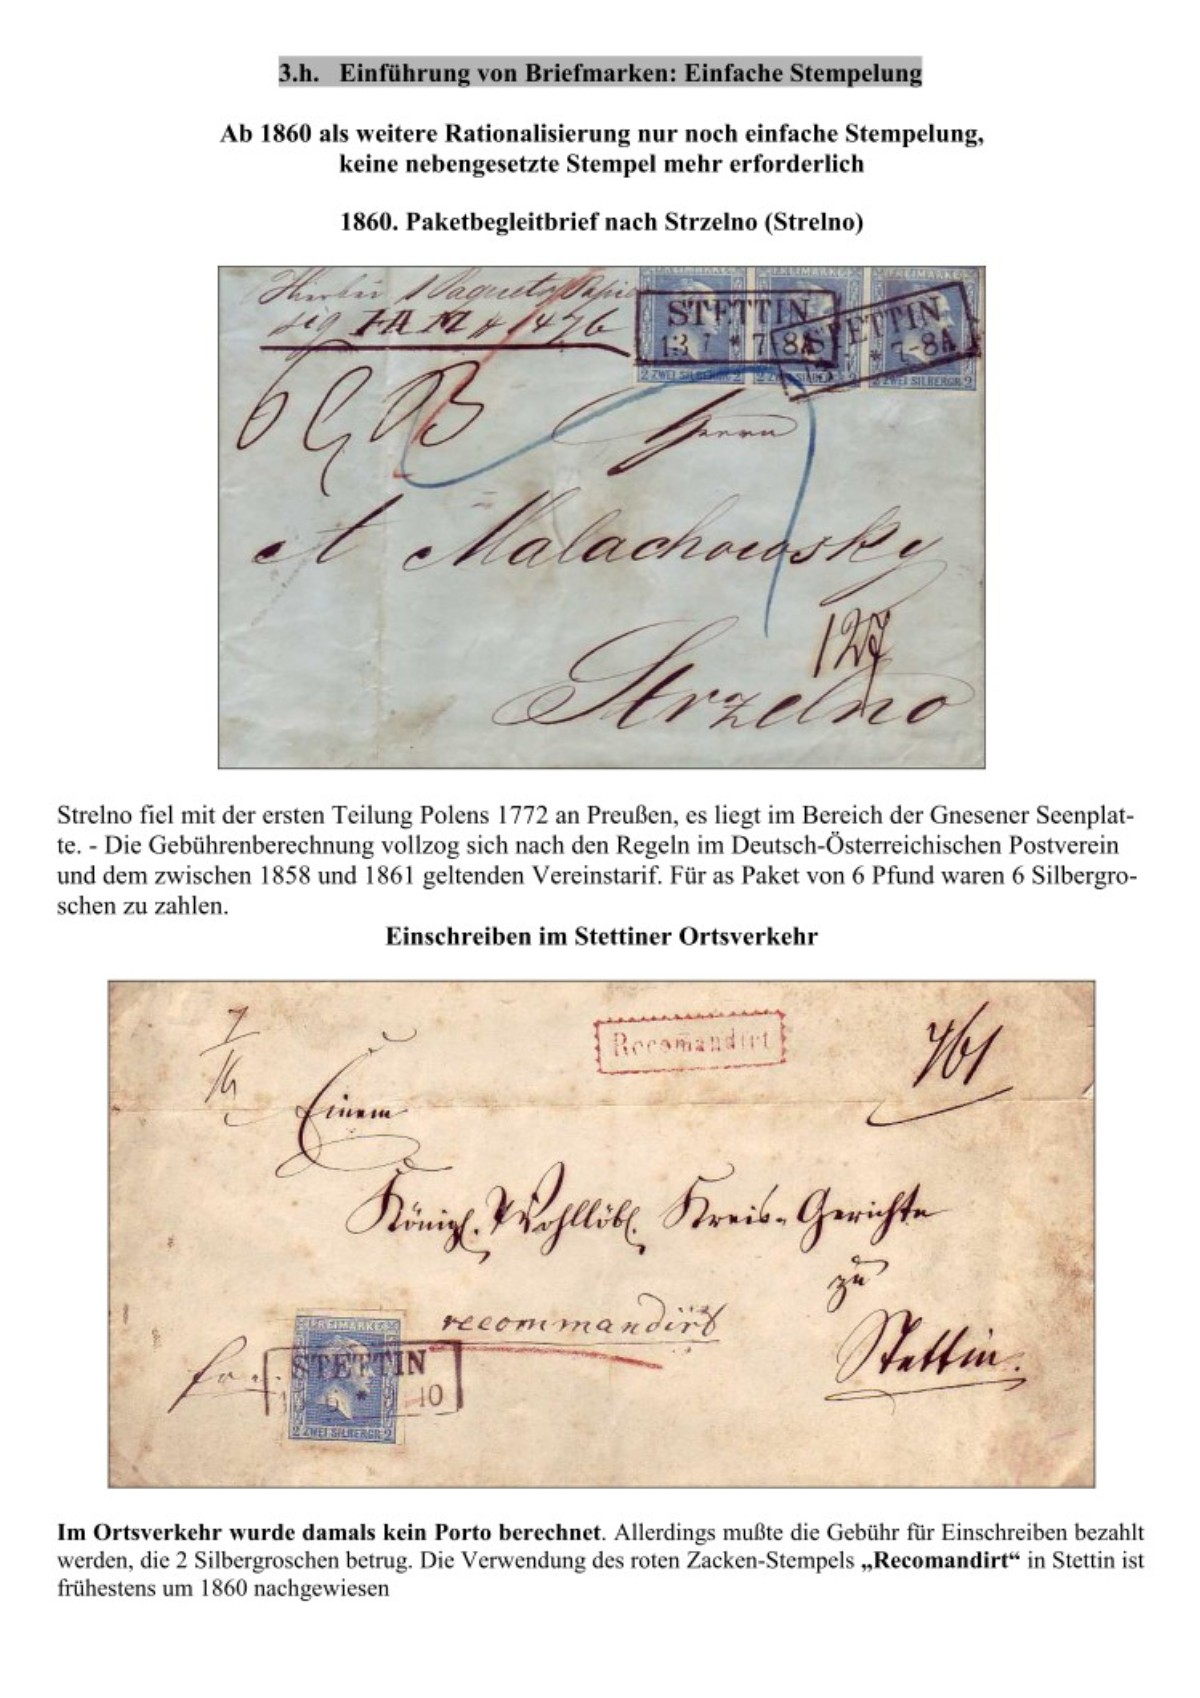 3.h. Einführung von Briefmarken: Einfache Stempelung
Ab 1860 als weitere Rationalisierung nur noch einfache Stempelung,
keine nebengesetzte Stempel mehr erforderlich
1860. Paketbegleitbrief nach Strzelno (Strelno)
Hierbei 1 Paquet
sig 1476
FREIMARKE FREIMARKE FREIMARKE
STETTIN STETTIN
13 7 * 7-8A * 7-8A
2 ZWEI SILBERGR 2 2 ZWEI SILBERGR 2 2 ZWEI SILBERGR 2
6
Herrn
A Malachowsky
127
Strzelno
Strelno fiel mit der ersten Teilung Polens 1772 an Preußen, es liegt im Bereich der Gnesener Seenplat-
te. - Die Gebührenberechnung vollzog sich nach den Regeln im Deutsch-Österreichischen Postverein
und dem zwischen 1858 und 1861 geltenden Vereinstarif. Für as Paket von 6 Pfund waren 6 Silbergro-
schen zu zahlen.
Einschreiben im Stettiner Ortsverkehr
Recomandirt
761
7
Einem
Königl. Wohllöbl. Kreis-Gerichte
zu
recommandirt
Stettin.
FREIMARKE
STETTIN
* 10
2 ZWEI SILBERGR 2
Im Ortsverkehr wurde damals kein Porto berechnet. Allerdings mußte die Gebühr für Einschreiben bezahlt
werden, die 2 Silbergroschen betrug. Die Verwendung des roten Zacken-Stempels „Recomandirt“ in Stettin ist
frühestens um 1860 nachgewiesen